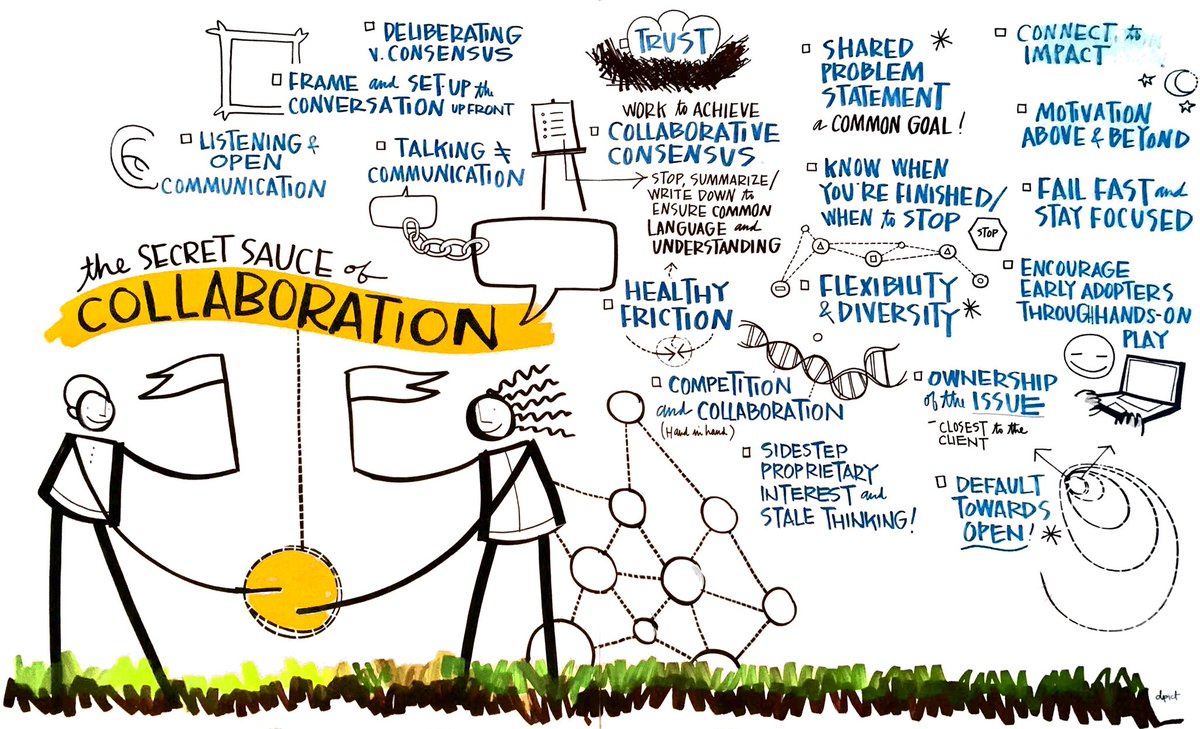 DELIBERATING
V. CONSENSUS
FRAME and SET-UP the
CONVERSATION UP FRONT
LISTENING &
OPEN
COMMUNICATION
TALKING ≠
COMMUNICATION
the SECRET SAUCE of
COLLABORATION
TRUST
WORK to ACHIEVE
COLLABORATIVE
CONSENSUS
STOP, SUMMARIZE/
WRITE DOWN to
ENSURE COMMON
LANGUAGE and
UNDERSTANDING
HEALTHY
FRICTION
COMPETITION
and COLLABORATION
(Hand in hand)
SIDESTEP
PROPRIETARY
INTEREST and
STALE THINKING!
SHARED
PROBLEM
STATEMENT
a COMMON GOAL!
KNOW WHEN
YOU'RE FINISHED/
WHEN to STOP
STOP
FLEXIBILITY
& DIVERSITY
OWNERSHIP
of the ISSUE
- CLOSEST to the
CLIENT
DEFAULT
TOWARDS
OPEN!
CONNECT to
IMPACT
MOTIVATION
ABOVE & BEYOND
FAIL FAST and
STAY FOCUSED
ENCOURAGE
EARLY ADOPTERS
THROUGH HANDS-ON
PLAY